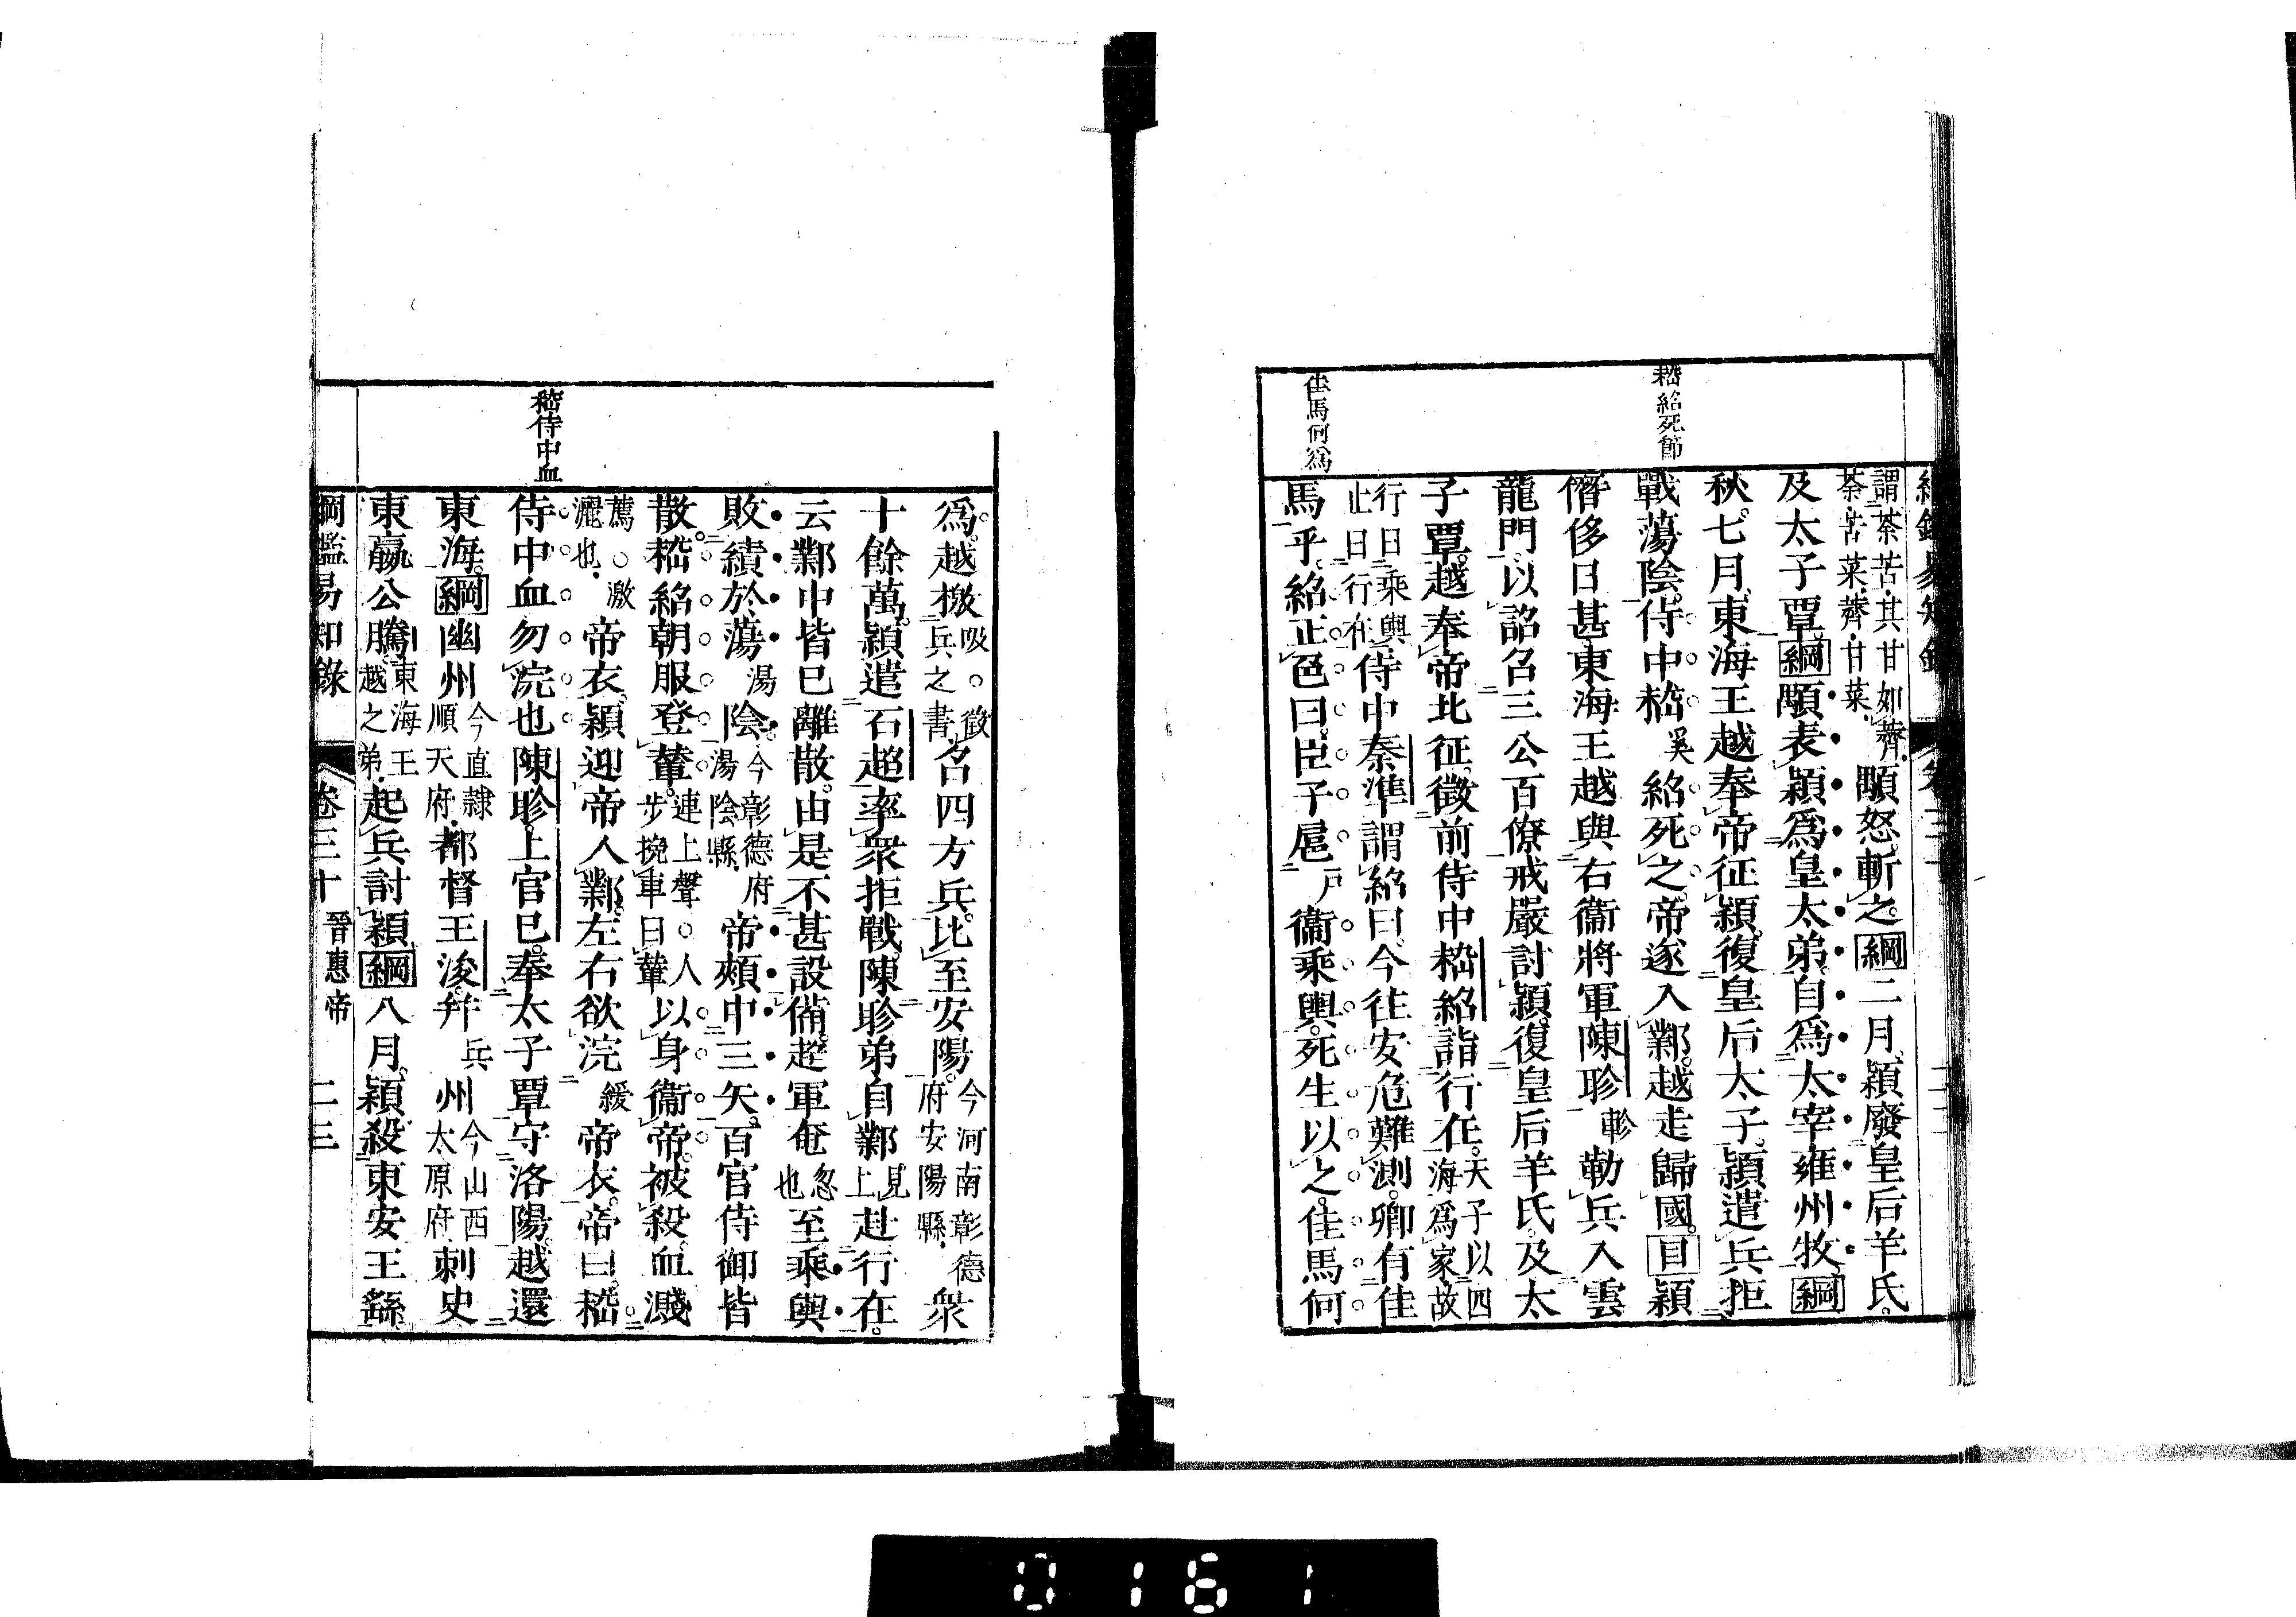 嵇紹死節
佳馬何爲
謂荼苦其甘如薺
荼苦菜薺甘菜
顒怒斬之綱二月穎廢皇后羊氏
及太子覃綱顒表穎爲皇太弟自爲太宰雍州牧綱
秋七月東海王越奉帝征穎復皇后太子穎遣兵拒
戰蕩陰侍中嵇奚紹死之帝遂入鄴越走歸國目穎
僭侈日甚東海王越與右衞將軍陳眕軫勒兵入雲
龍門以詔召三公百僚戒嚴討穎復皇后羊氏及太
子覃越奉帝北征徵前侍中嵇紹詣行在天子以四
海爲家故
行曰乘輿
止曰行在
侍中秦準謂紹曰今往安危難測卿有佳
馬乎紹正色曰臣子扈戶衞乘輿死生以之佳馬何
嵇侍中血
爲越檄吸○徵
兵之書
召四方兵比至安陽今河南彰德
府安陽縣
衆
十餘萬穎遣石超率衆拒戰陳眕弟自鄴見
上
赴行在
云鄴中皆已離散由是不甚設備超軍奄忽
也
至乘輿
敗績於蕩湯陰今彰德府
湯陰縣
帝頰中三矢百官侍御皆
散嵇紹朝服登輦連上聲○人
步挽車曰輦
以身衞帝被殺血濺
薦○激
灑也
帝衣穎迎帝入鄴左右欲浣緩帝衣帝曰嵇
侍中血勿浣也陳眕上官巳奉太子覃守洛陽越還
東海綱幽州今直隸
順天府
都督王浚幷兵州今山西
太原府
刺史
東嬴公騰東海王
越之弟
起兵討穎綱八月穎殺東安王繇
綱鑑易知錄
卷三十
晉惠帝
二三
0161